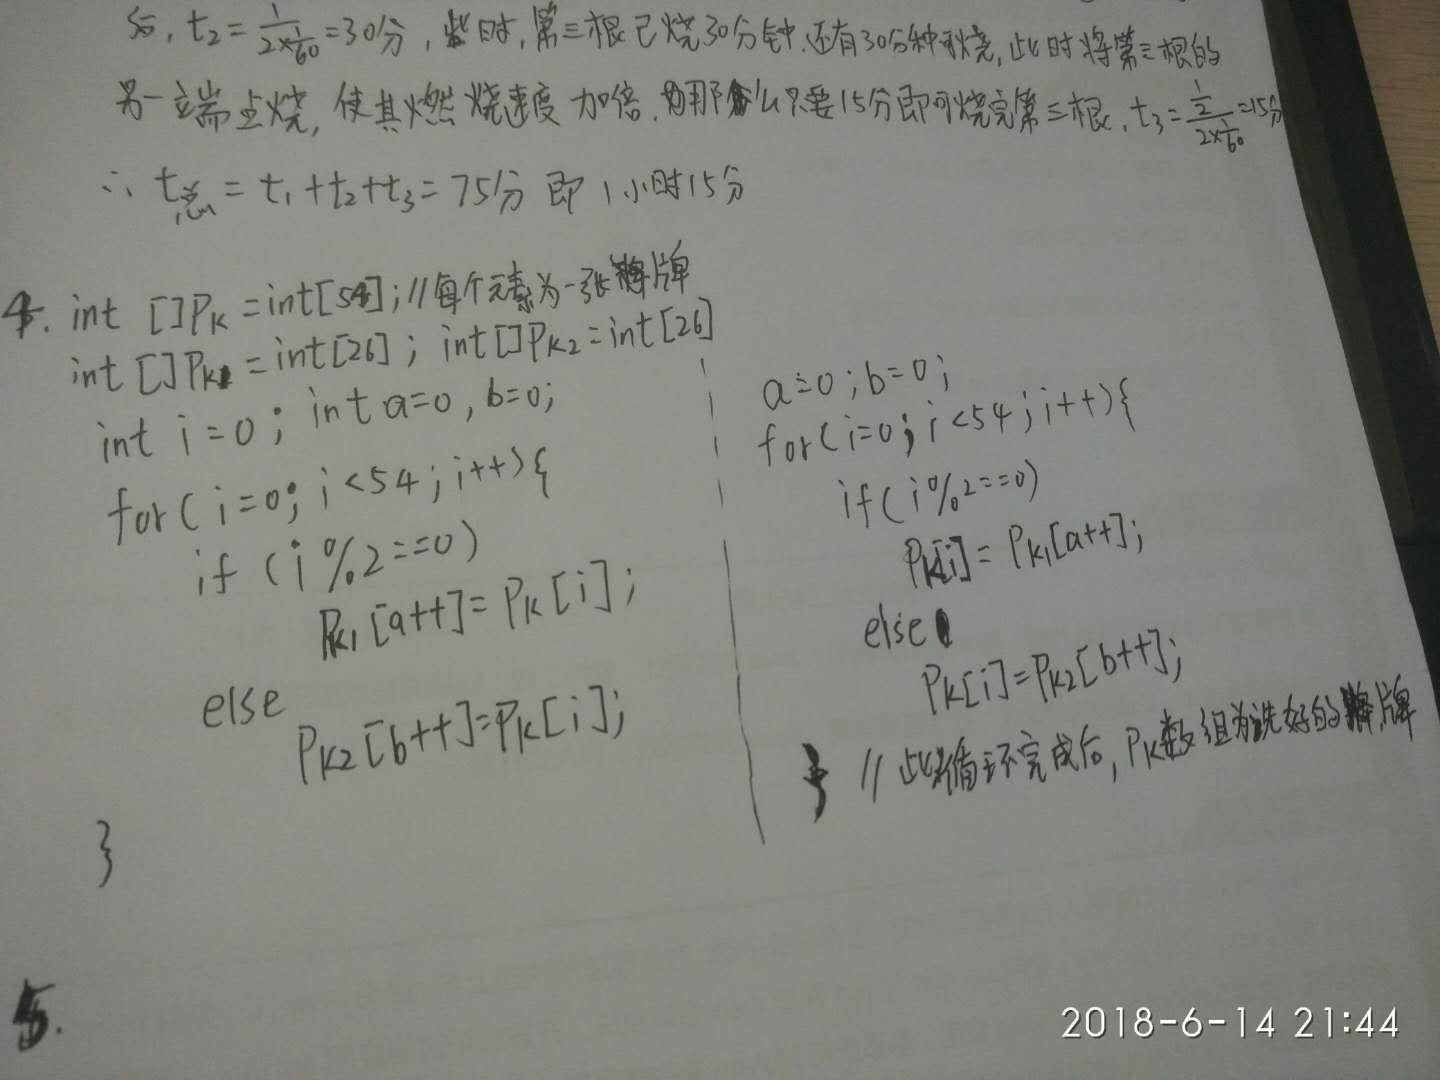 后, t₂ = 1/(2×1/60) = 30分, 此时, 第三根已烧30分钟, 还有30分种可烧, 此时将第三根的
另一端点烧, 使其燃烧速度加倍, 那么只要15分即可烧完第三根, t₃ = (1/2)/(2×1/60) = 15分
∴ t总 = t₁+t₂+t₃ = 75分 即 1小时15分
4. int []PK = int[54]; //每个元素为一张牌
int []PK1 = int[26]; int[]PK2 = int[26]
int i = 0; int a=0, b=0;
for(i=0; i<54; i++){
if (i%2==0)
PK1[a++] = PK[i];
else
PK2[b++] = PK[i];
}
a=0; b=0;
for(i=0; i<54; i++){
if(i%2==0)
PK[i] = PK1[a++];
else
PK[i] = PK2[b++];
} // 此循环完成后, PK数组为洗好的牌
5.
2018-6-14 21:44